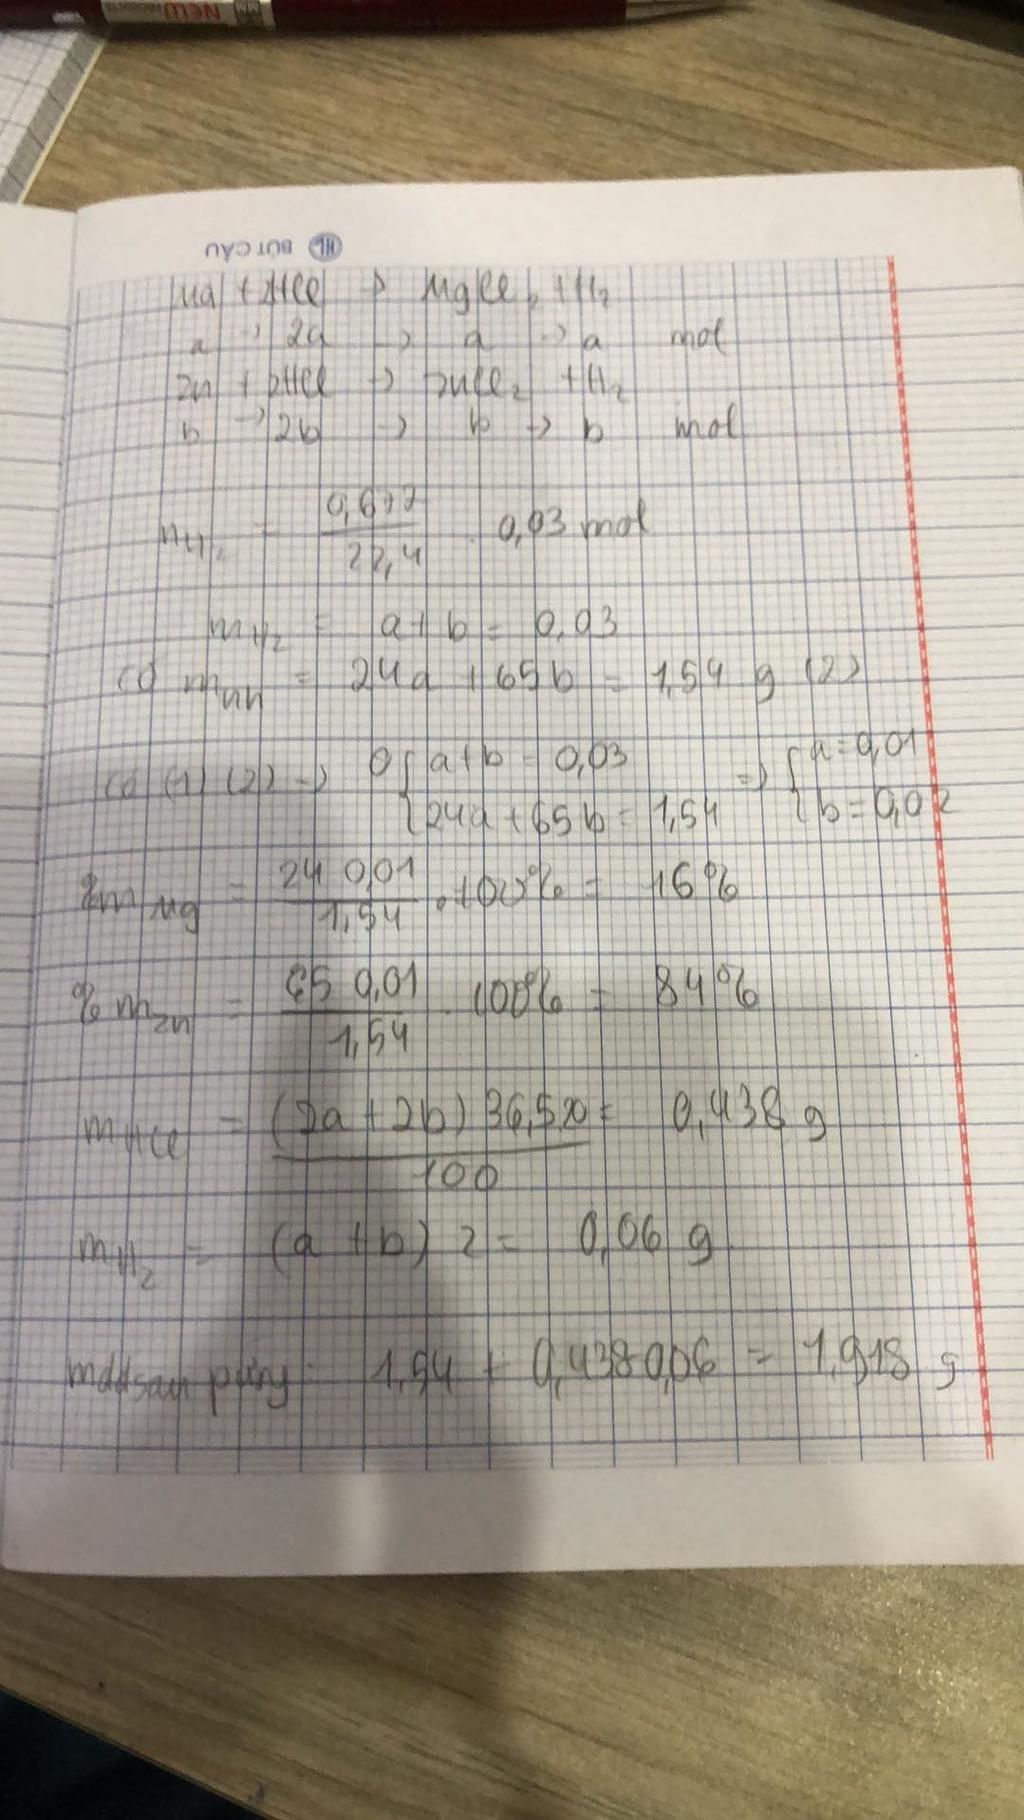 NEW
HL BÚT CẦU
Mg + 2HCl → MgCl₂ + H₂
a → 2a → a → a mol
Zn + 2HCl → ZnCl₂ + H₂
b → 2b → b → b mol
nH₂ = 0,672 / 22,4 0,03 mol
mH₂ = a + b = 0,03
có mhh = 24a + 65b = 1,54 g (2)
có (1) (2) → { a + b = 0,03 => { a = 0,01
{ 24a + 65b = 1,54 { b = 0,02
%m Mg = 24 0,01 / 1,54 . 100% = 16%
% mZn = 65 0,01 / 1,54 100% = 84%
mHCl = (2a + 2b) 36,5 20 / 100 = 0,438 g
mH₂ = (a + b) 2 = 0,06 g
mddsau pứng 1,54 + 0,438 0,06 = 1,918 g